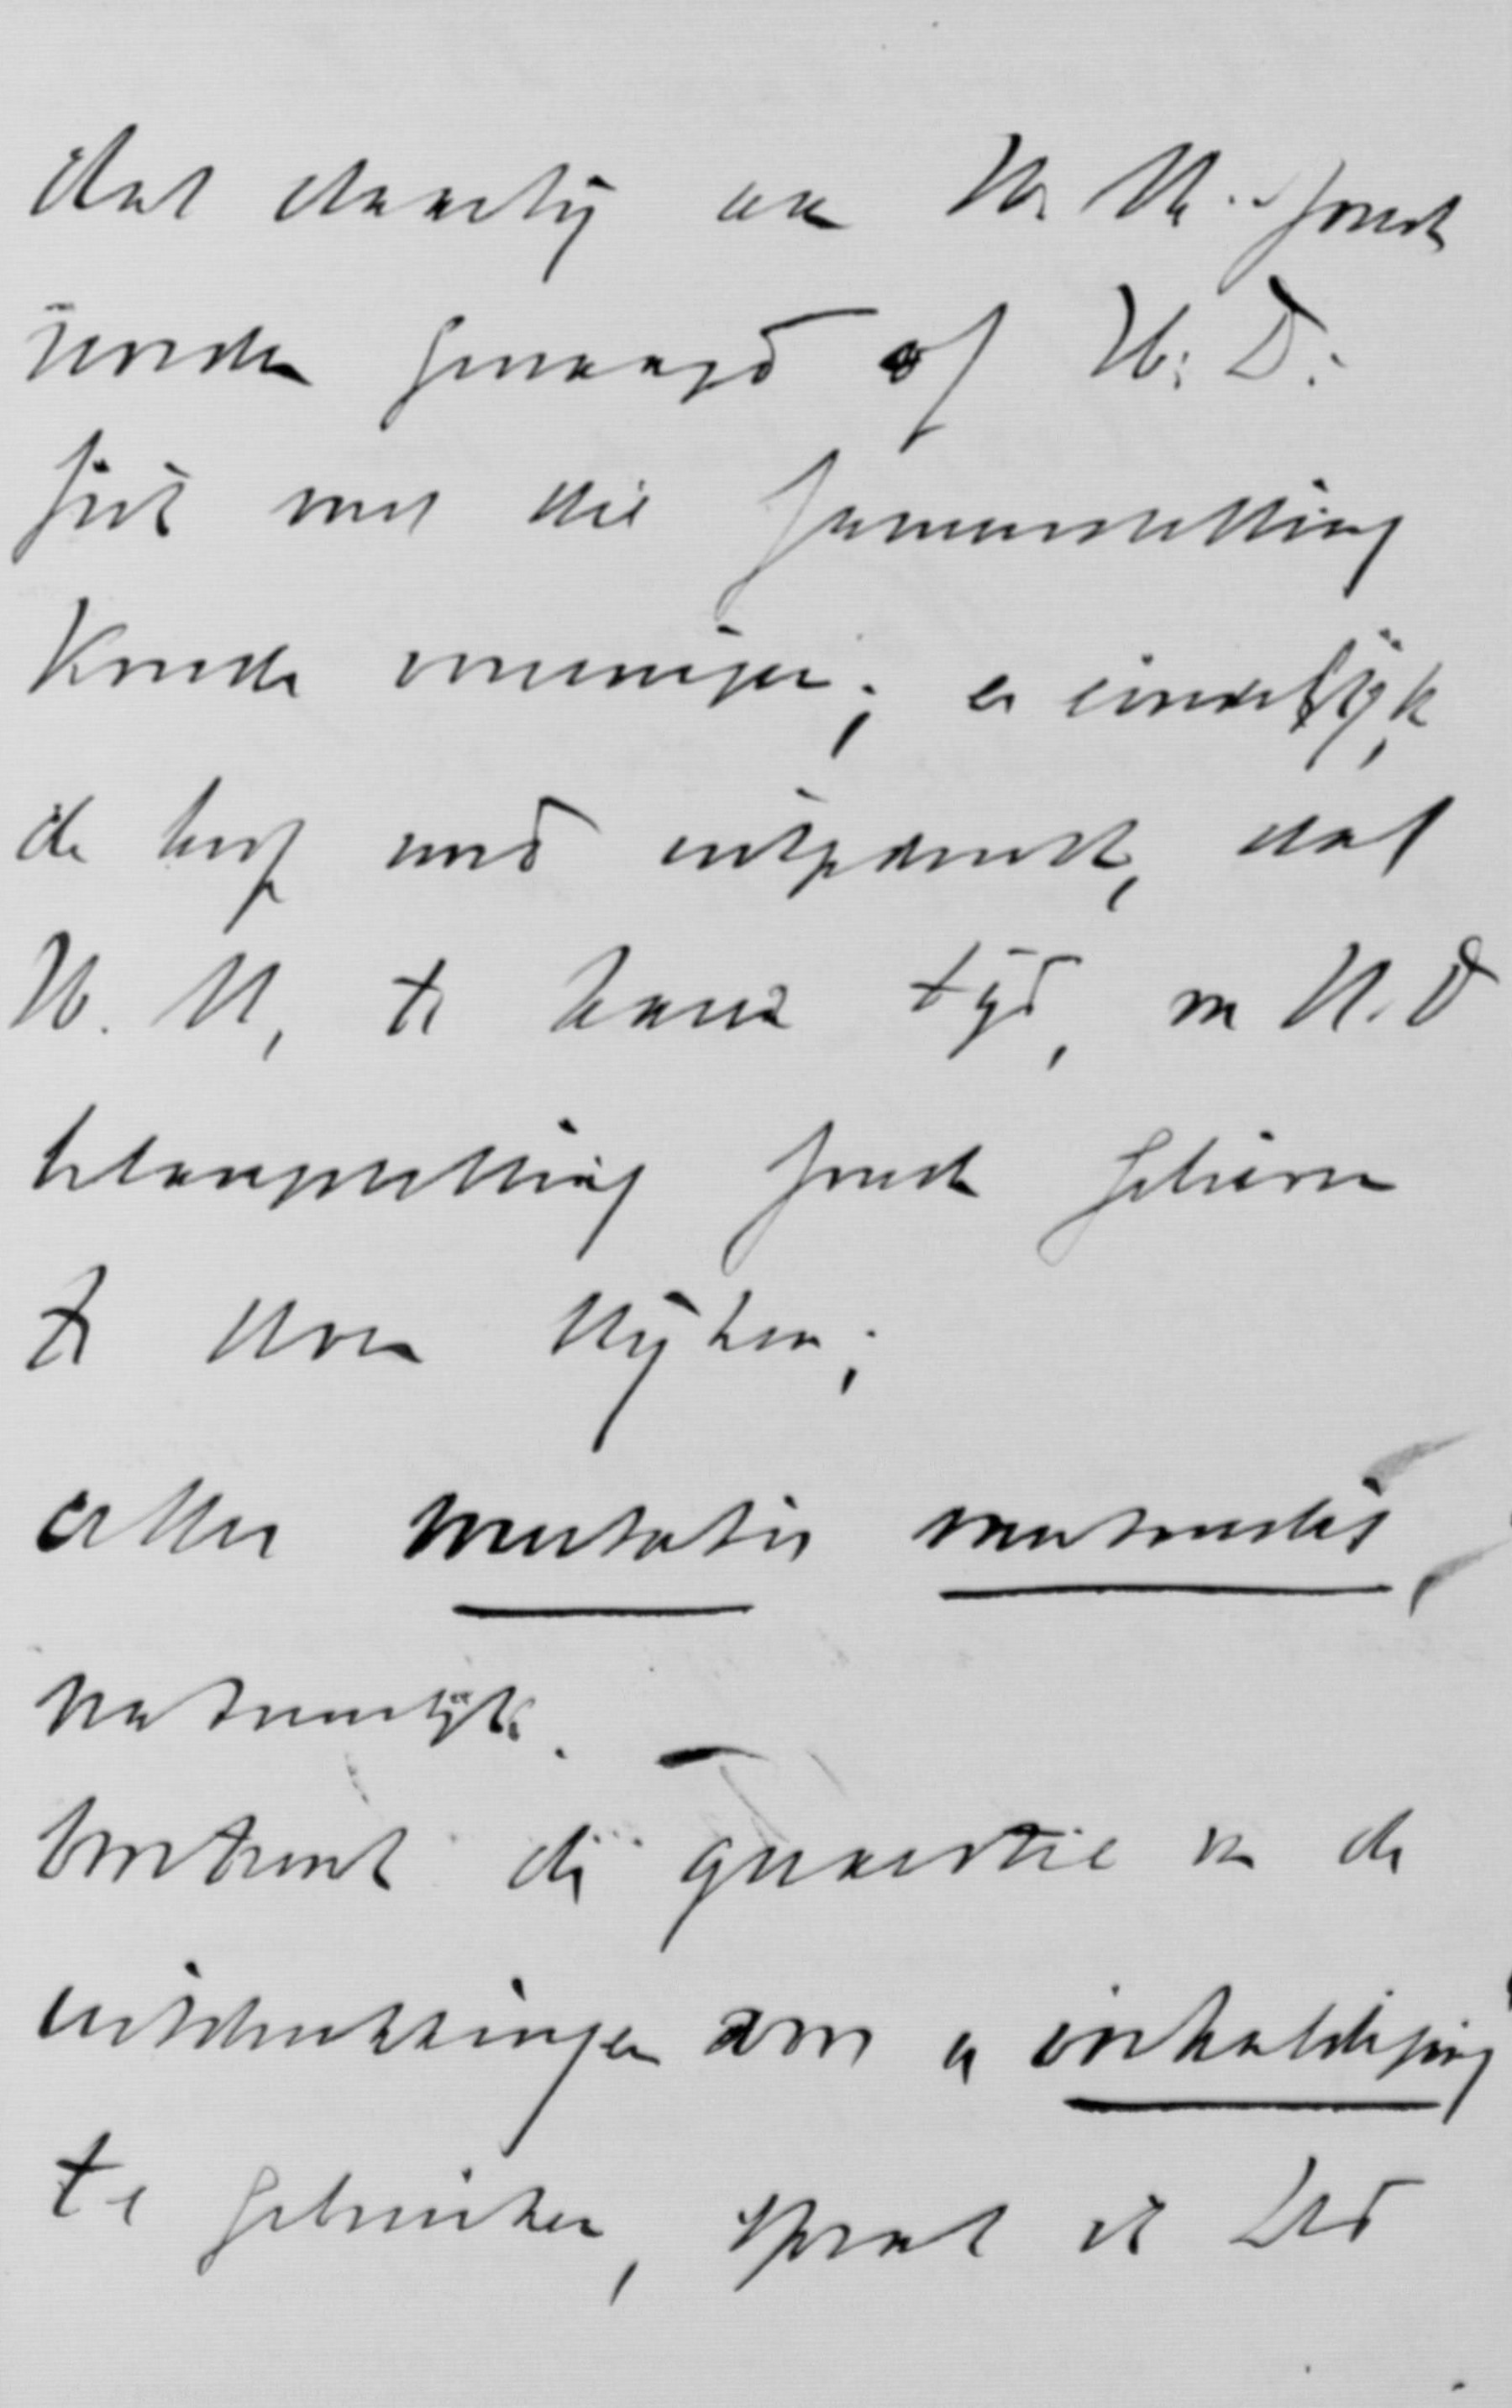 dat daarbij aan H. M. zoude
worden gevraagd of H. D.
zich met die samenstelling
konde vereenigen; en eindelijk,
de hoop werd uitgedrukt, dat
H. M., te harer tijd, van H. D
belangstelling zoude gelieven
te doen blijken;
alles mutatis mutandis,
natuurlijk. —
Omtrent die quaestie van de
uitdrukkingen voor een inhuldiging
te gebruiken, sprak ik